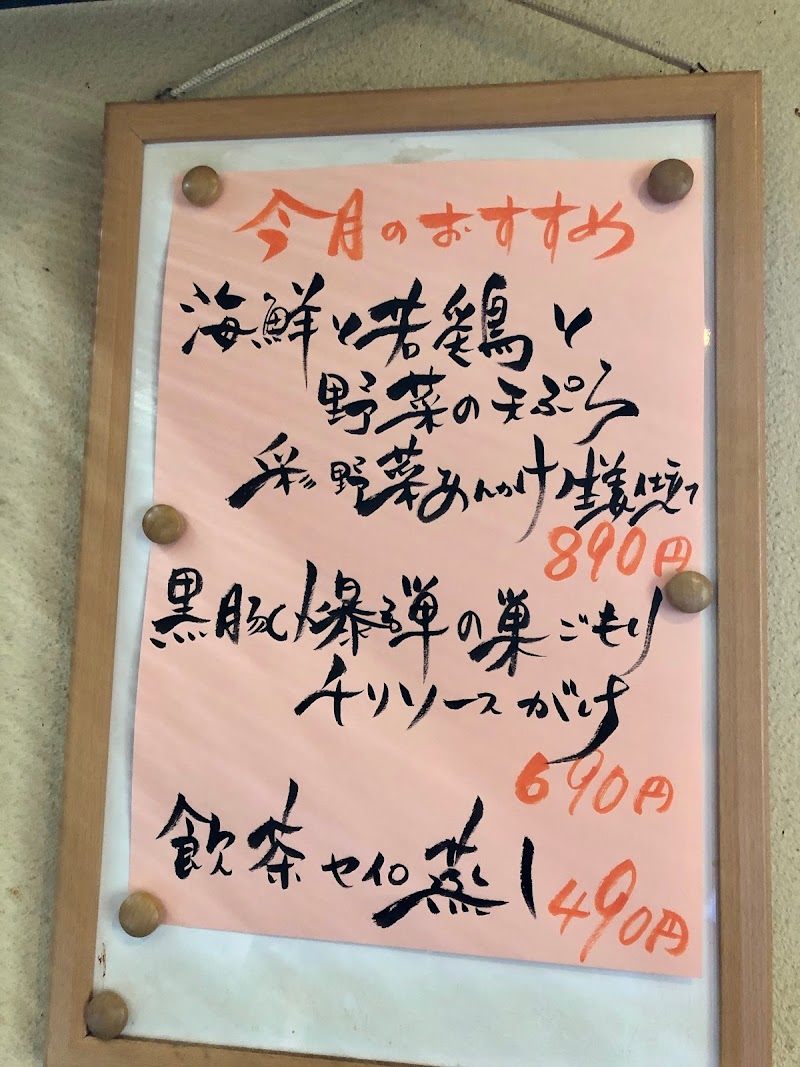 今月のおすすめ
海鮮と若鶏と
野菜の天ぷら
彩野菜あんかけ生姜仕立て
890円
黒豚爆弾の巣ごもり
チリソースがけ
690円
飲茶セイロ蒸し
490円